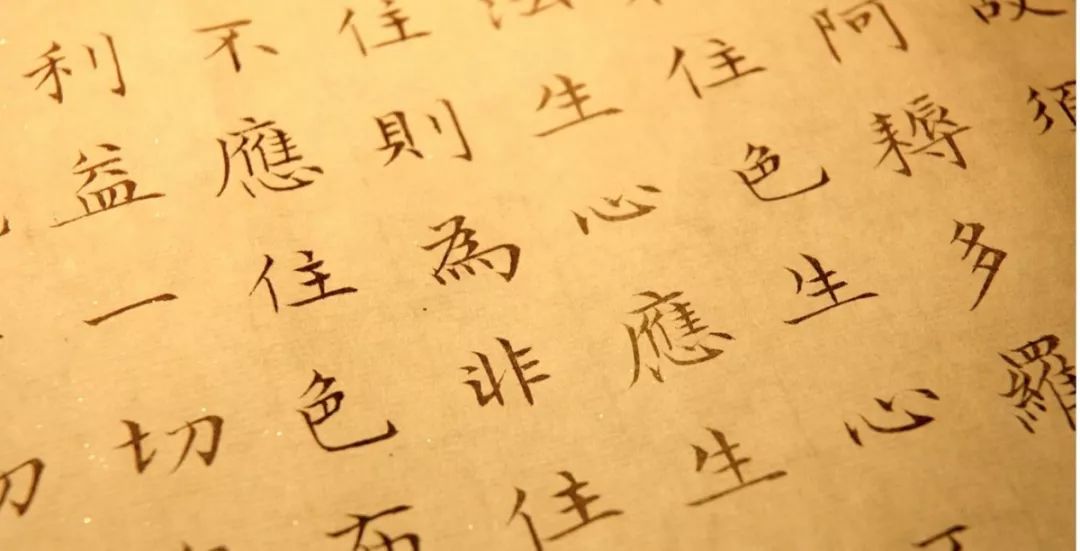 故須
阿耨多羅
住色生心
法生心應生
住則為非住
不應住色布
利益一切